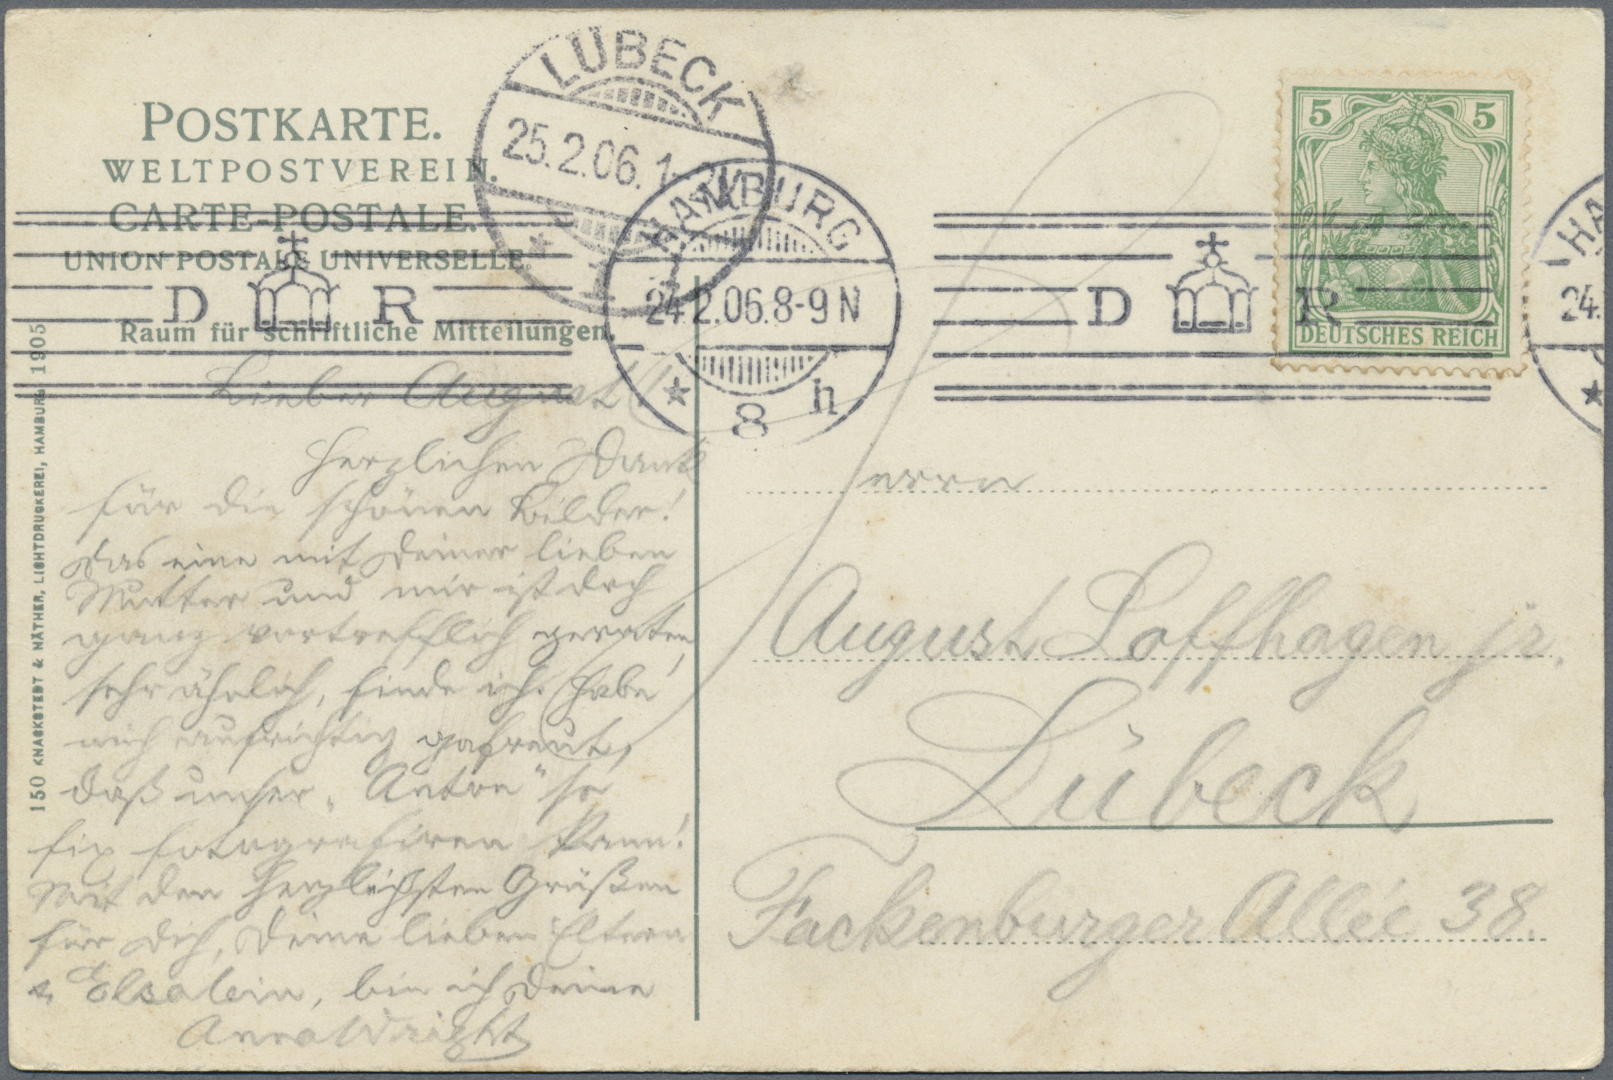 POSTKARTE.
WELTPOSTVEREIN.
CARTE-POSTALE.
UNION POSTALE UNIVERSELLE.
Raum für schriftliche Mitteilungen.
LÜBECK
25.2.06.1-
1
HAMBURG
24.2.06.8-9N
8 h
D R
D R
5 5
DEUTSCHES REICH
HA
24.
150 KNACKSTEDT & NÄTHER, LICHTDRUCKEREI, HAMBURG 1905
Lieber August!
Herzlichen Dank
für die schönen Bilder!
Das eine mit Deiner lieben
Mutter und mir ist doch
ganz vortrefflich geraten,
sehr ähnlich, finde ich. Habe
mich aufrichtig gefreut,
daß unser „Anton" so
fix fotografiren kann!
Mit den herzlichsten Grüßen
für Dich, Deine lieben Eltern
u. Elsalein, bin ich Deine
Anna Wright
Herrn
August Loffhagen jr.
Lübeck
Fackenburger Allée 38.